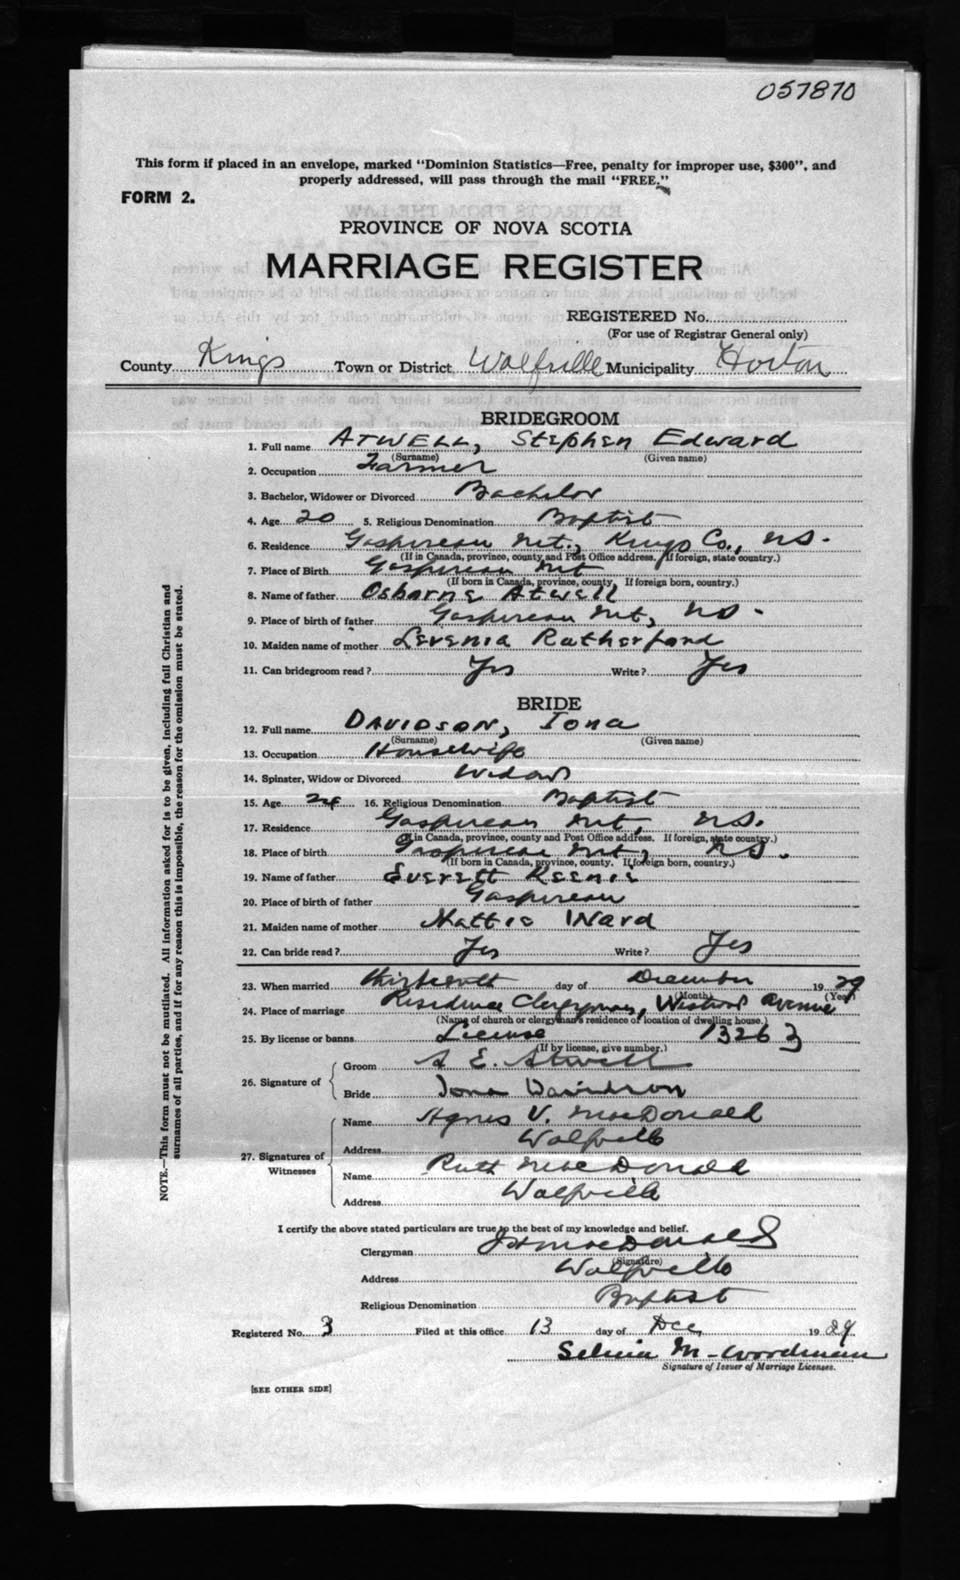 057870
This form if placed in an envelope, marked "Dominion Statistics—Free, penalty for improper use, $300", and
properly addressed, will pass through the mail "FREE."
FORM 2.
PROVINCE OF NOVA SCOTIA
MARRIAGE REGISTER
REGISTERED No.
(For use of Registrar General only)
County Kings Town or District Wolfville Municipality Horton
BRIDEGROOM
1. Full name ATWELL, Stephen Edward
(Surname) (Given name)
2. Occupation Farmer
3. Bachelor, Widower or Divorced Bachelor
4. Age 20 5. Religious Denomination Baptist
6. Residence Gaspereau Mt., Kings Co., N.S.
(If in Canada, province, county and Post Office address. If foreign, state country.)
7. Place of Birth Gaspereau Mt
(If born in Canada, province, county. If foreign born, country.)
8. Name of father Osborne Atwell
9. Place of birth of father Gaspereau Mt, NS.
10. Maiden name of mother Levenia Rutherford
11. Can bridegroom read? Yes Write? Yes
BRIDE
12. Full name DAVIDSON, Iona
(Surname) (Given name)
13. Occupation Housewife
14. Spinster, Widow or Divorced Widow
15. Age 24 16. Religious Denomination Baptist
17. Residence Gaspereau Mt, N.S.
(If in Canada, province, county and Post Office address. If foreign, state country.)
18. Place of birth Gaspereau Mt, N.S.
(If born in Canada, province, county. If foreign born, country.)
19. Name of father Everett Keenie
20. Place of birth of father Gaspereau
21. Maiden name of mother Mattie Ward
22. Can bride read? Yes Write? Yes
23. When married thirteenth day of December 1929
(Month) (Year)
24. Place of marriage Residence Clergyman, Westwood Avenue
(Name of church or clergyman's residence or location of dwelling house.)
25. By license or banns License 13263
(If by license, give number.)
26. Signature of
Groom S E. Atwell
Bride Iona Davidson
27. Signatures of Witnesses
Name Agnes V. MacDonald
Address Wolfville
Name Ruth MacDonald
Address Wolfville
I certify the above stated particulars are true to the best of my knowledge and belief.
Clergyman MacDonald
(Signature)
Address Wolfville
Religious Denomination Baptist
Registered No. 3 Filed at this office 13 day of Dec, 1929
M. Woodman
Signature of Issuer of Marriage Licenses.
[SEE OTHER SIDE]
NOTE.—This form must not be mutilated. All information asked for is to be given, including full Christian and
surnames of all parties, and if for any reason this is impossible, the reason for the omission must be stated.